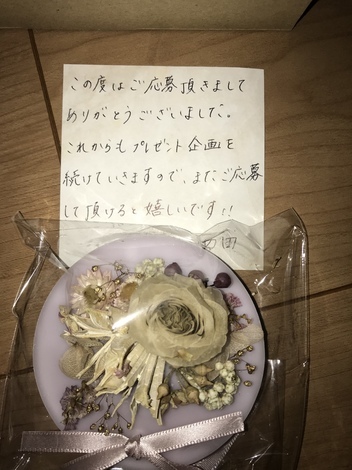 この度はご応募頂きまして
ありがとうございました。
これからもプレゼント企画を
続けていきますので、またご応募
して頂けると嬉しいです!!